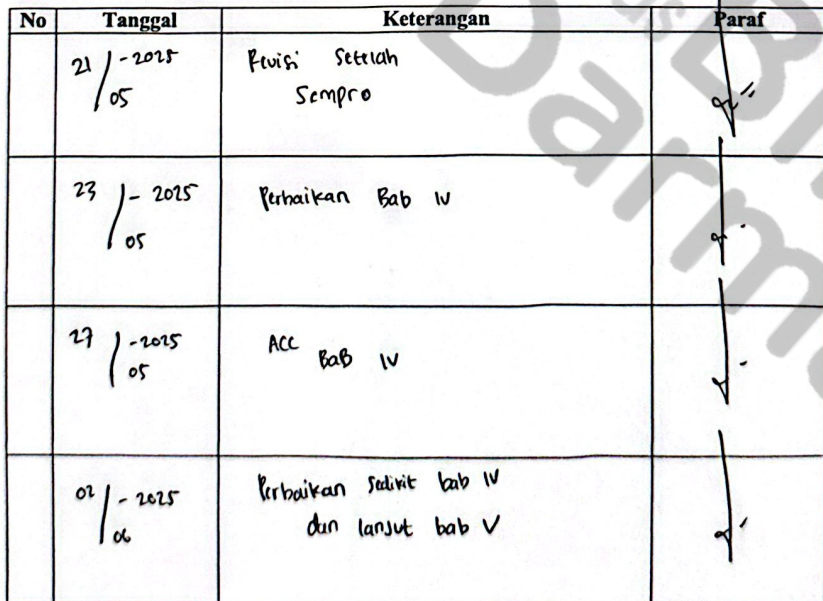 No Tanggal Keterangan Paraf
21/05-2025 Revisi Setelah
Sempro
23/05-2025 Perbaikan Bab IV
27/05-2025 ACC BaB IV
02/06-2025 Perbaikan sedikit bab IV
dan lanjut bab V
Darma